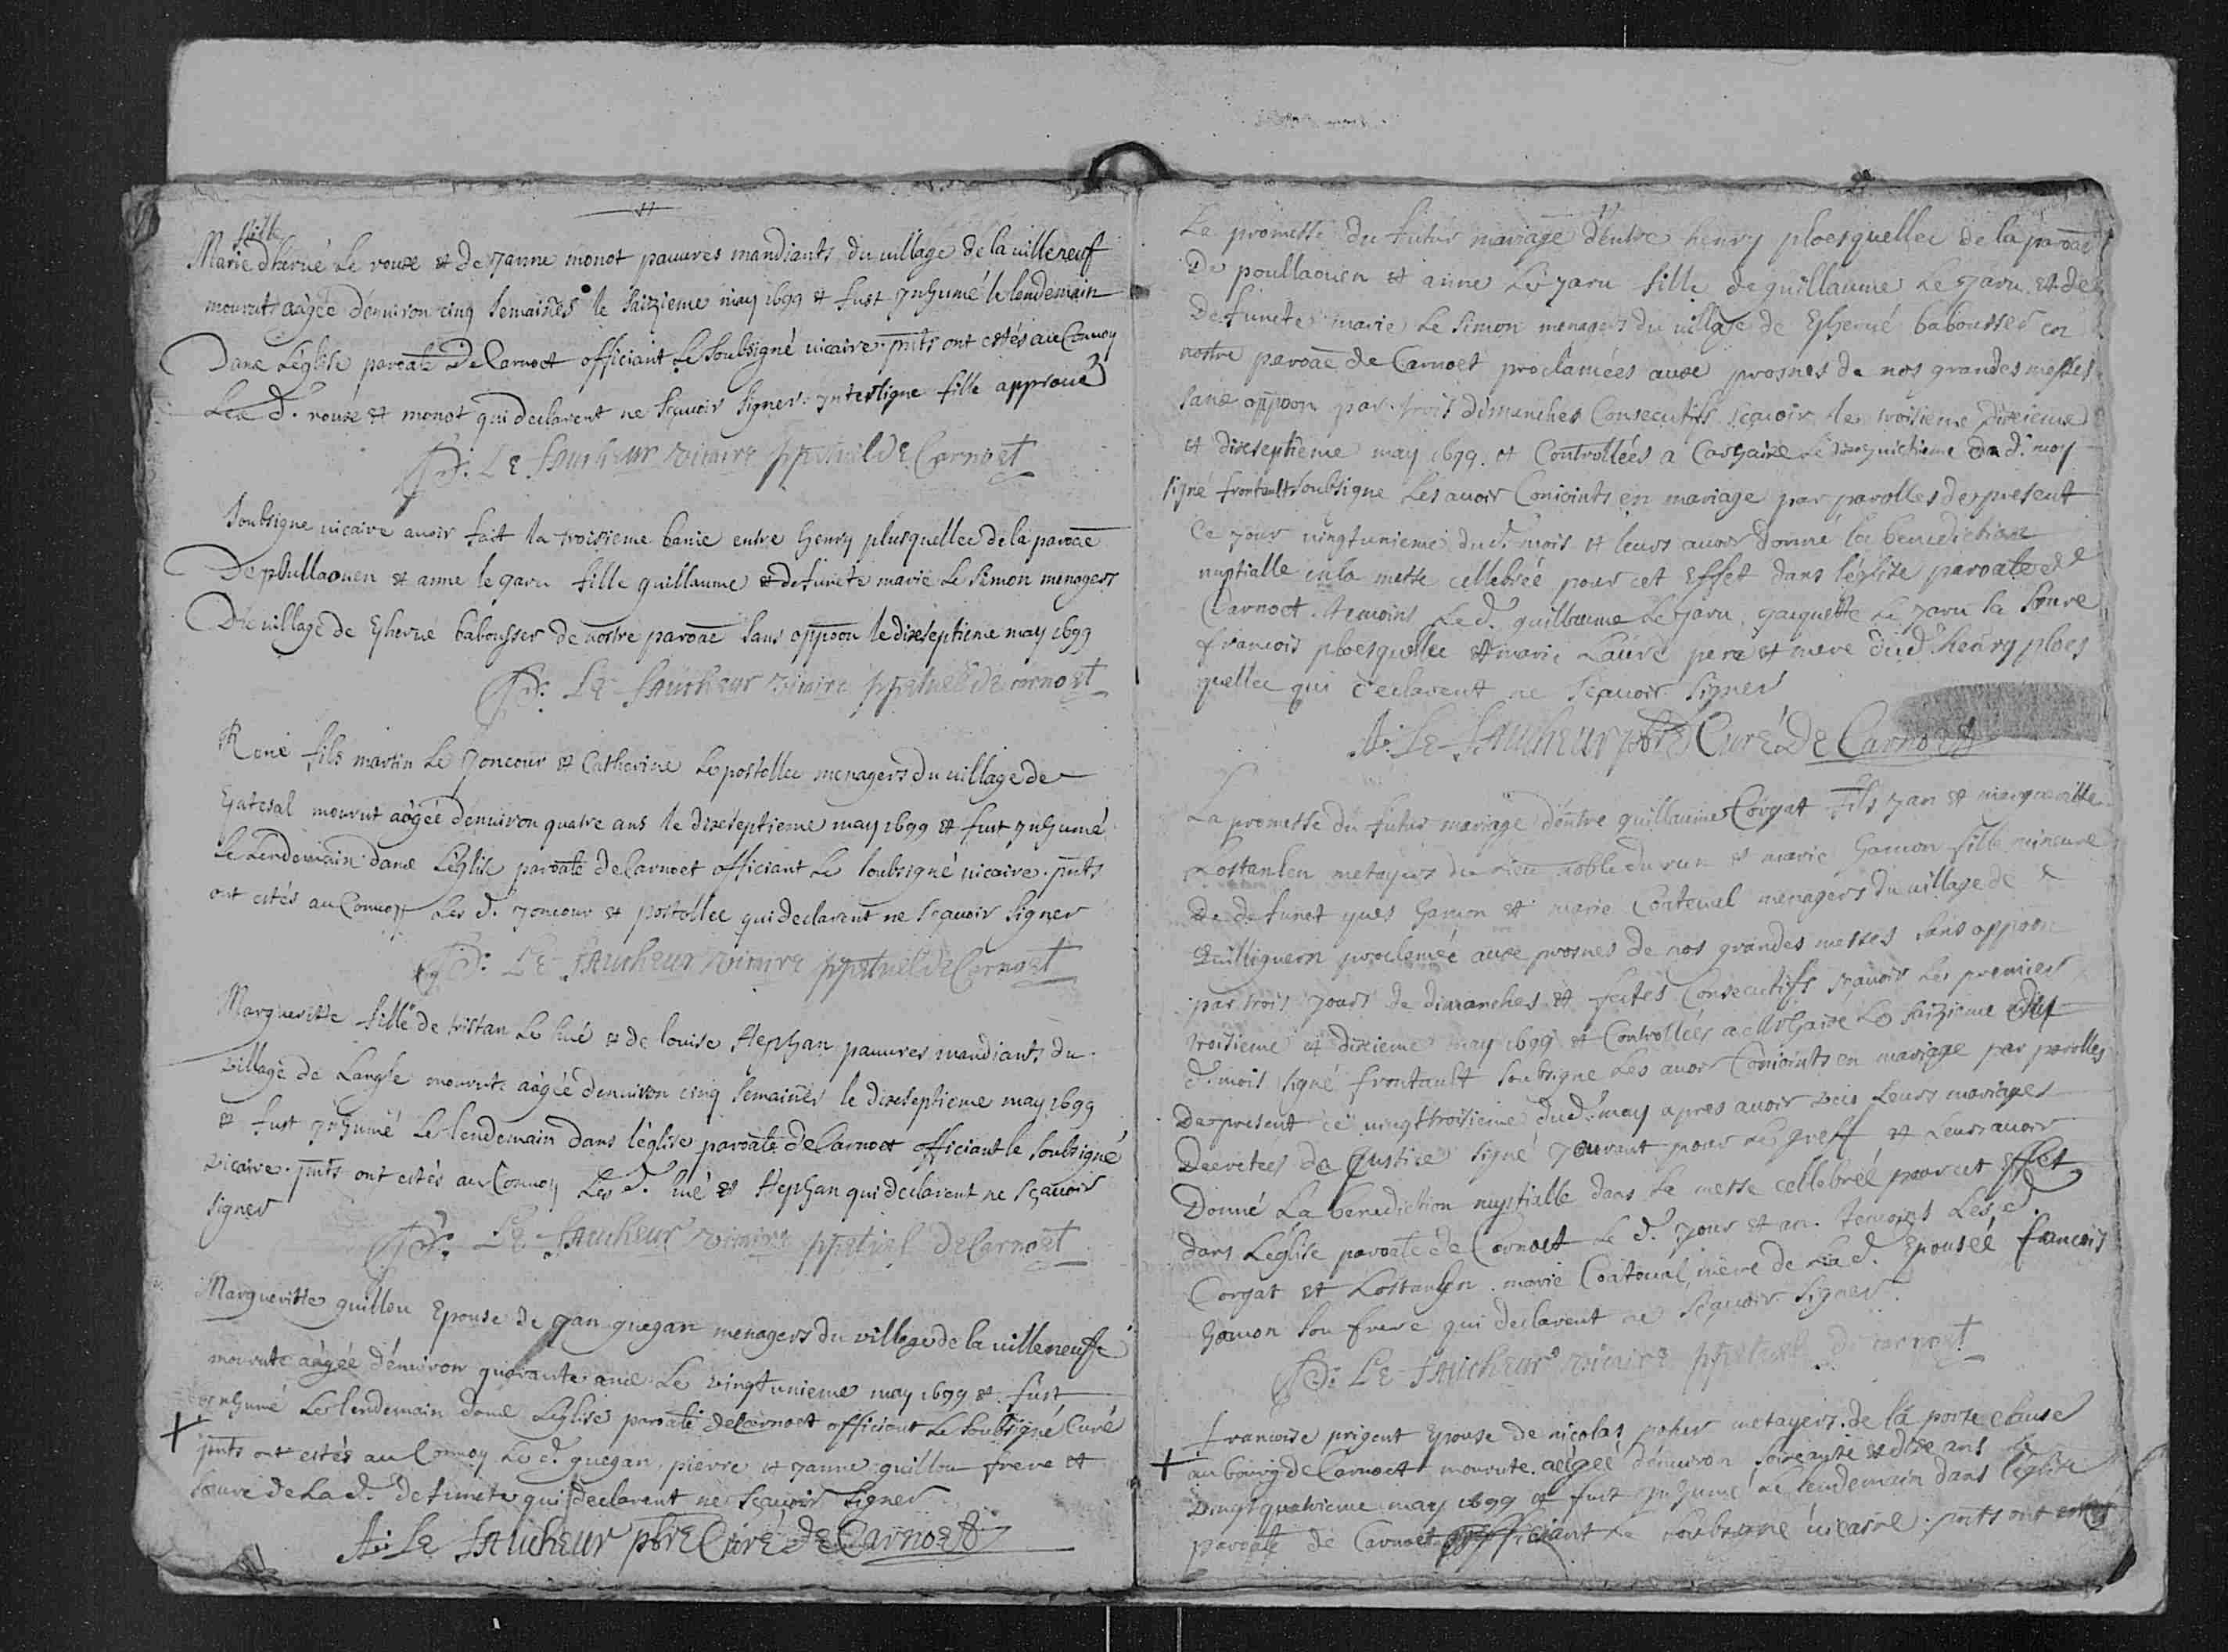 fille
Marie dherué Le roux et de Janne monot pauures mandiants du village de la uilleneuf
mourut aâgée denuiron cinq semaines le saizieme may 1699 et fust Inhumé le lendemain
Dans L'église paroãle De Carnoet officiant Le soubsigné uicaire. pnts ont estés au Conuoy
Les d. roux et monot qui declarent ne sçauoir signer. Interligne fille approuué
Le faucheur vicaire ppetuel De Carnoet
Soubsigne uicaire auoir fait la troisieme banie entre henry plusquellec de la paroae
De pullaouen et anne le garu fille guillaume et defuncte marie Le simon menagers
Du uillage de Kherué babousser de nostre paroae sans oppoon le dixseptieme may 1699
Le faucheur vicaire ppetuel de carnoet
René fils martin Le Joncour et Catherine Le postollec menagers du uillage de
mourut aâgée denuiron quatre ans le dixseptieme may 1699 et fust Inhumé
Le Lendemain dans L'église paroale de Carnoet officiant Le soubsigné uicaire. pnts
ont estés au Conuoy Les d. Joncour et postollec qui declarent ne sçauoir signer
Le faucheur vicaire ppetuel de Carnoet
Marguerite fille de tristan Le hué et de louise stephan pauures mandiants du
village de mourut aâgée denuiron cinq semaines le dixseptieme may 1699
et fust Inhumé Le lendemain dans l'église paroale de Carnoet officiant le soubsigné
vicaire. pnts ont estés au Conuoy Les d. hué et stephan qui declarent ne sçauoir
signer
Le faucheur vicaire ppetuel de Carnoet
Marguerite guillou Epouse de Jan guegan menagers du village de la uilleneuffe
mourute aâgée d'enuiron quarante ans Le vingtunieme may 1699 et fust
Inhumé Le lendemain dans L'église paroale de Carnoet officiant Le soubsigné Curé
pnts ont estés au Conuoy Le d. guegan, pierre et Janne guillou frere et
soeure de La d. defuncte qui declarent ne sçauoir signer
Le faucheur pbre Curé de Carnoet
La promesse du futur mariage d'entre henry ploesquellec de la paroae
De poullaouen et anne Le Jaru fille de guillaume Le Jaru et de
Defuncte marie Le simon menagers du uillage de Kherué babousser en
nostre paroae de Carnoet proclamées aux prosnes de nos grandes messes
sans oppoon par trois dimanches Consecutifs sçauoir les troisieme dixieme
et dixseptieme may 1699. et Controllées a Carhaix Le dixhuictieme du d. moy
signé frontault soubsigne Les auoir Conioints en mariage par parolles de present
Ce Jour uingtunieme du d. mois et leurs auoir donné la benediction
nuptialle en la messe cellebrée pour cet Effet dans l'église paroale de
Carnoet. temoins Le d. guillaume Le Jaru, Jacquette Le Jaru la soeure
francois ploesquellec et marie Laure pere et mere du d. henry ploes
quellec qui declarent ne sçauoir signer
Le faucheur pbre Curé De Carnoet
La promesse du futur mariage d'entre guillaume Corgat fils Jan et marguerite
Lostanlen metayers du Lieu noble du run et marie hamon fille mineure
De defunct yues hamon et marie Coatoual menagers du uillage de
Quilliguern proclamée aux prosnes de nos grandes messes sans oppoon
par trois Jours de dimanches et festes Consecutifs sçauoir Les premier
troisieme et dixieme may 1699 et Controllées a Carhaix Le saizieme du
d. mois signé frontault soubsigne Les auoir Conioints en mariage par parolles
De present ce uingttroisieme du d. may apres auoir veu Leurs mariages
Decretees de Justice signé pour Le greff et Leurs auoir
Donné La benediction nuptialle dans La messe cellebrée pour cet effet
dans L'église paroale de Carnoet Le d. Jour et an. temoins Les d.
Corgat et Lostanlen. marie Coatoual mere de La d. Epousée francois
hamon son frere qui declarent ne sçauoir signer
Le faucheur vicaire ppetuel de carnoet
francoise prigent Epouse de nicolas poher metayers. de la porte clause
au bourg de Carnoet mourute aâgée d'enuiron soixante et dix ans le
vingtquatrieme may 1699 et fust Inhumé Le lendemain dans l'église
paroale de Carnoet officiant Le soubsigne uicaire. pnts ont estés